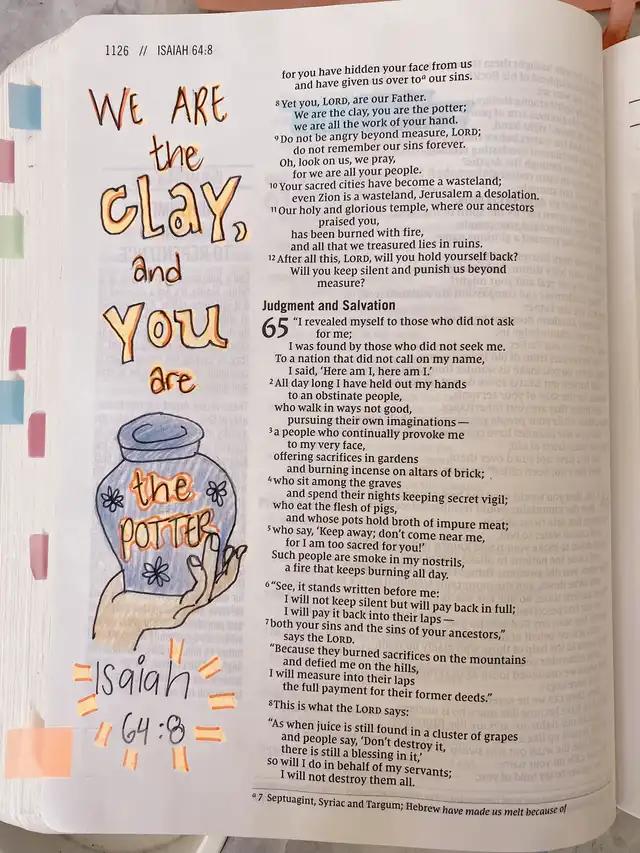 1126 // ISAIAH 64:8
WE ARE
the
CLAY,
and
YOU
are
the
POTTER
Isaiah
64:8
for you have hidden your face from us
and have given us over to a our sins.
8 Yet you, LORD, are our Father.
We are the clay, you are the potter;
we are all the work of your hand.
9 Do not be angry beyond measure, LORD;
do not remember our sins forever.
Oh, look on us, we pray,
for we are all your people.
10 Your sacred cities have become a wasteland;
even Zion is a wasteland, Jerusalem a desolation.
11 Our holy and glorious temple, where our ancestors
praised you,
has been burned with fire,
and all that we treasured lies in ruins.
12 After all this, LORD, will you hold yourself back?
Will you keep silent and punish us beyond
measure?
Judgment and Salvation
65 “I revealed myself to those who did not ask
for me;
I was found by those who did not seek me.
To a nation that did not call on my name,
I said, ‘Here am I, here am I.’
2 All day long I have held out my hands
to an obstinate people,
who walk in ways not good,
pursuing their own imaginations—
3 a people who continually provoke me
to my very face,
offering sacrifices in gardens
and burning incense on altars of brick;
4 who sit among the graves
and spend their nights keeping secret vigil;
who eat the flesh of pigs,
and whose pots hold broth of impure meat;
5 who say, ‘Keep away; don’t come near me,
for I am too sacred for you!’
Such people are smoke in my nostrils,
a fire that keeps burning all day.
6 “See, it stands written before me:
I will not keep silent but will pay back in full;
I will pay it back into their laps—
7 both your sins and the sins of your ancestors,”
says the LORD.
“Because they burned sacrifices on the mountains
and defied me on the hills,
I will measure into their laps
the full payment for their former deeds.”
8 This is what the LORD says:
“As when juice is still found in a cluster of grapes
and people say, ‘Don’t destroy it,
there is still a blessing in it,’
so will I do in behalf of my servants;
I will not destroy them all.
a 7 Septuagint, Syriac and Targum; Hebrew have made us melt because of